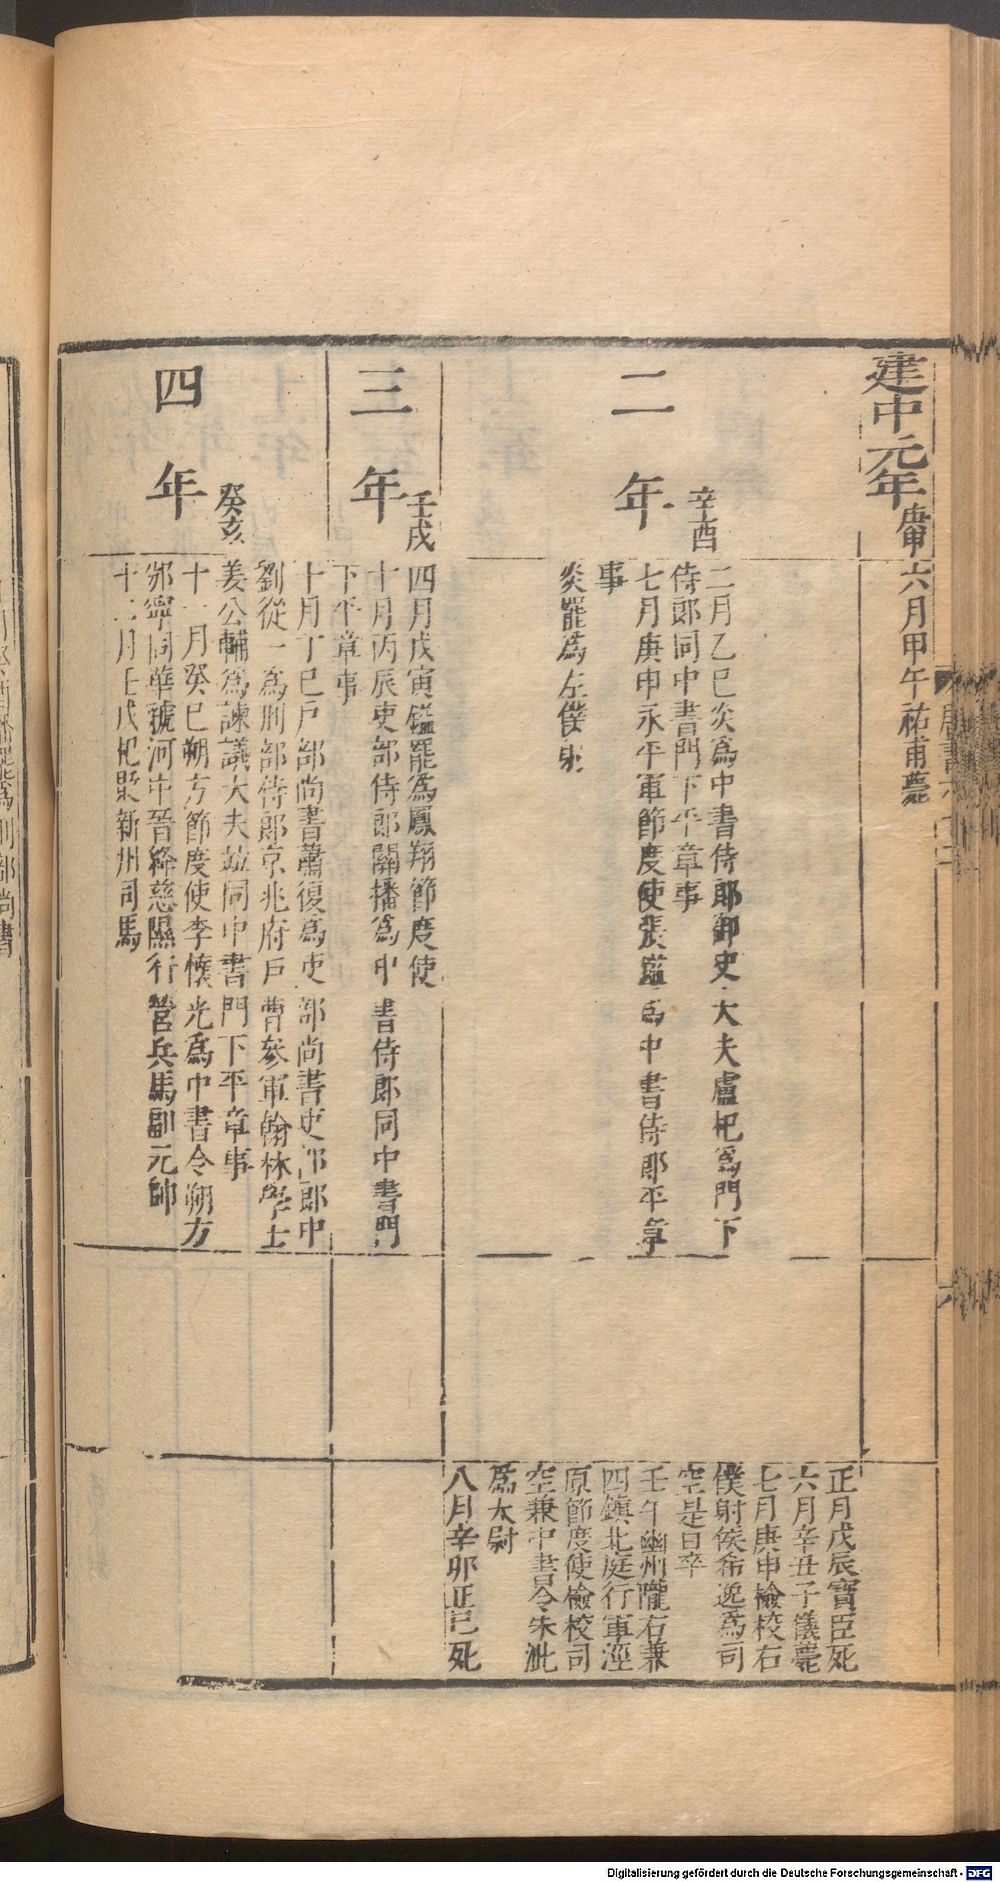 建中元年
庚申
六月甲午祐甫薨
二年
辛酉
二月乙巳炎爲中書侍郎御史大夫盧杞爲門下
侍郎同中書門下平章事
七月庚申永平軍節度使張鎰爲中書侍郎平章
事
炎罷爲左僕射
正月戊辰寶臣死
六月辛丑子儀薨
七月庚申檢校右
僕射侯希逸爲司
空是日卒
壬午幽州隴右兼
四鎮北庭行軍涇
原節度使檢校司
空兼中書令朱泚
爲太尉
八月辛卯正已死
三年
壬戌
四月戊寅鎰罷爲鳳翔節度使
十月丙辰吏部侍郎關播爲中書侍郎同中書門
下平章事
四年
癸亥
十月丁巳戶部尚書蕭復爲吏部尚書吏部郎中
劉從一爲刑部侍郎京兆府戶曹參軍翰林學士
姜公輔爲諫議大夫並同中書門下平章事
十一月癸巳朔方節度使李懷光爲中書令朔方
邠寧同華虢河中晉絳慈隰行營兵馬副元帥
十二月壬戌杞貶新州司馬
罷爲刑部尚書
Digitalisierung gefördert durch die Deutsche Forschungsgemeinschaft - DFG